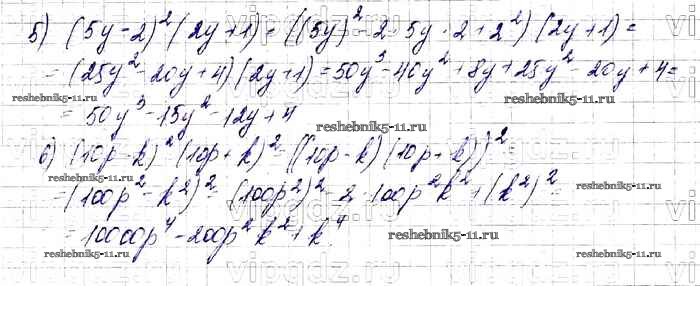 5) (5y-2)²(2y+1) = ((5y)² - 2·5y·2+2²)(2y+1) =
= (25y² - 20y+4)(2y+1) = 50y³-40y²+8y+25y²-20y+4=
= 50y³-15y²-12y+4
6) (10p-k)²(10p+k)² = ((10p-k)(10p+k))² =
= (100p²-k²)² = (100p²)² - 2·100p²k²+(k²)² =
= 10000p⁴-200p²k²+k⁴
reshebnik5-11.ru
reshebnik5-11.ru
reshebnik5-11.ru
reshebnik5-11.ru
reshebnik5-11.ru
vipgdz.ru
vipgdz.ru
vipgdz.ru